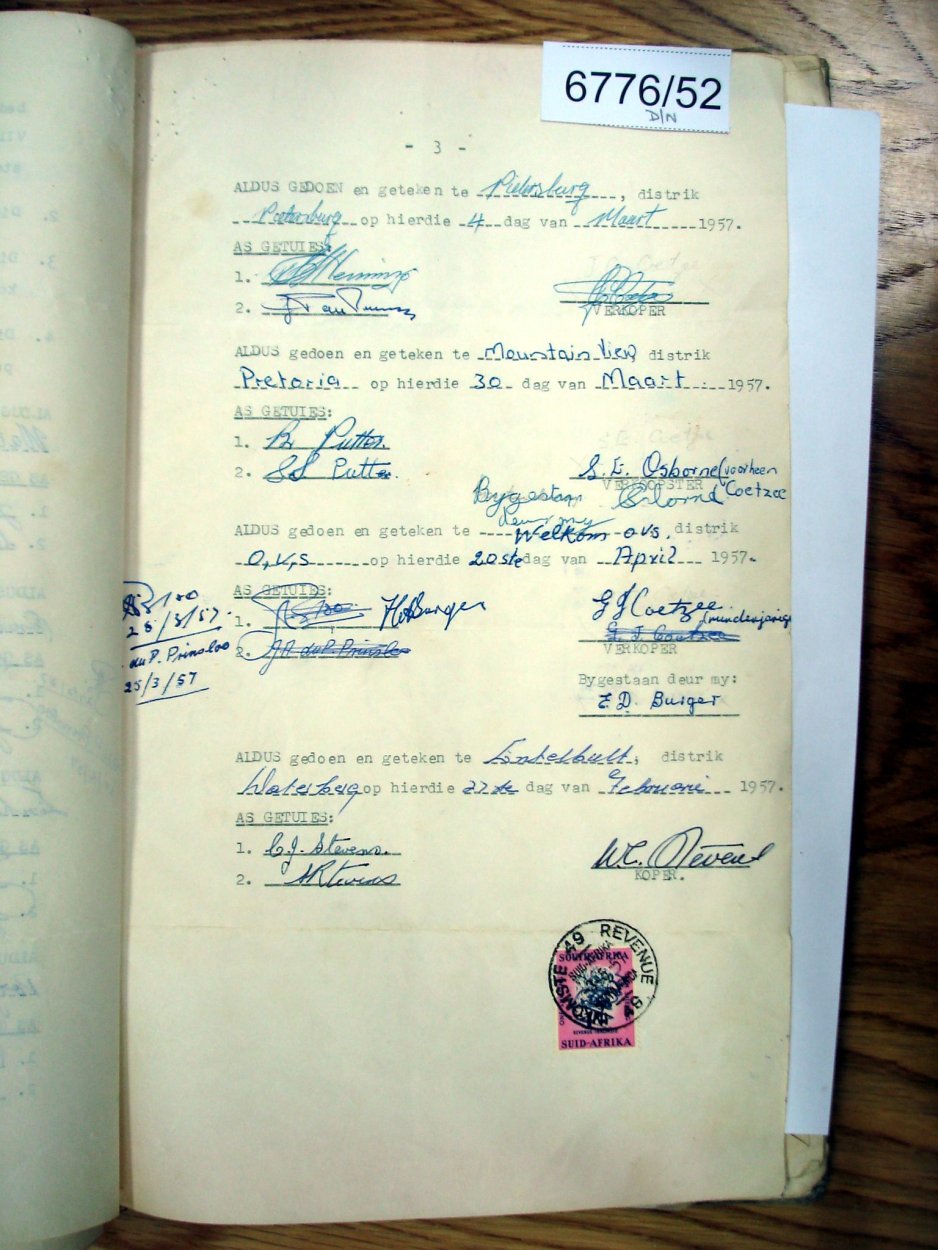 6776/52
D/N
- 3 -
ALDUS GEDOEN en geteken te Pietersburg, distrik
Pietersburg op hierdie 4 dag van Maart 1957.
AS GETUIES:
1.
2.
VERKOPER
ALDUS gedoen en geteken te Mountain View distrik
Pretoria op hierdie 30 dag van Maart 1957.
AS GETUIES:
1. Putter.
2. S S Putter.
S. E. Osborne (voorheen
VERKOOPSTER Coetzee
Bygestaan
deur my
ALDUS gedoen en geteken te Welkom OVS. distrik
O.V.S op hierdie 20ste dag van April 1957.
AS GETUIES:
1. Burger
G J Coetzee
G. J. Coetzee
2. du P. Prinsloo
VERKOPER
25/3/57.
du P. Prinsloo
25/3/57
Bygestaan deur my:
E. D. Burger
ALDUS gedoen en geteken te distrik
Waterberg op hierdie 22ste dag van Februarie 1957.
AS GETUIES:
1. C. J. Stevens.
2.
KOPER.
REVENUE
SOUTH AFRICA
SUID-AFRIKA